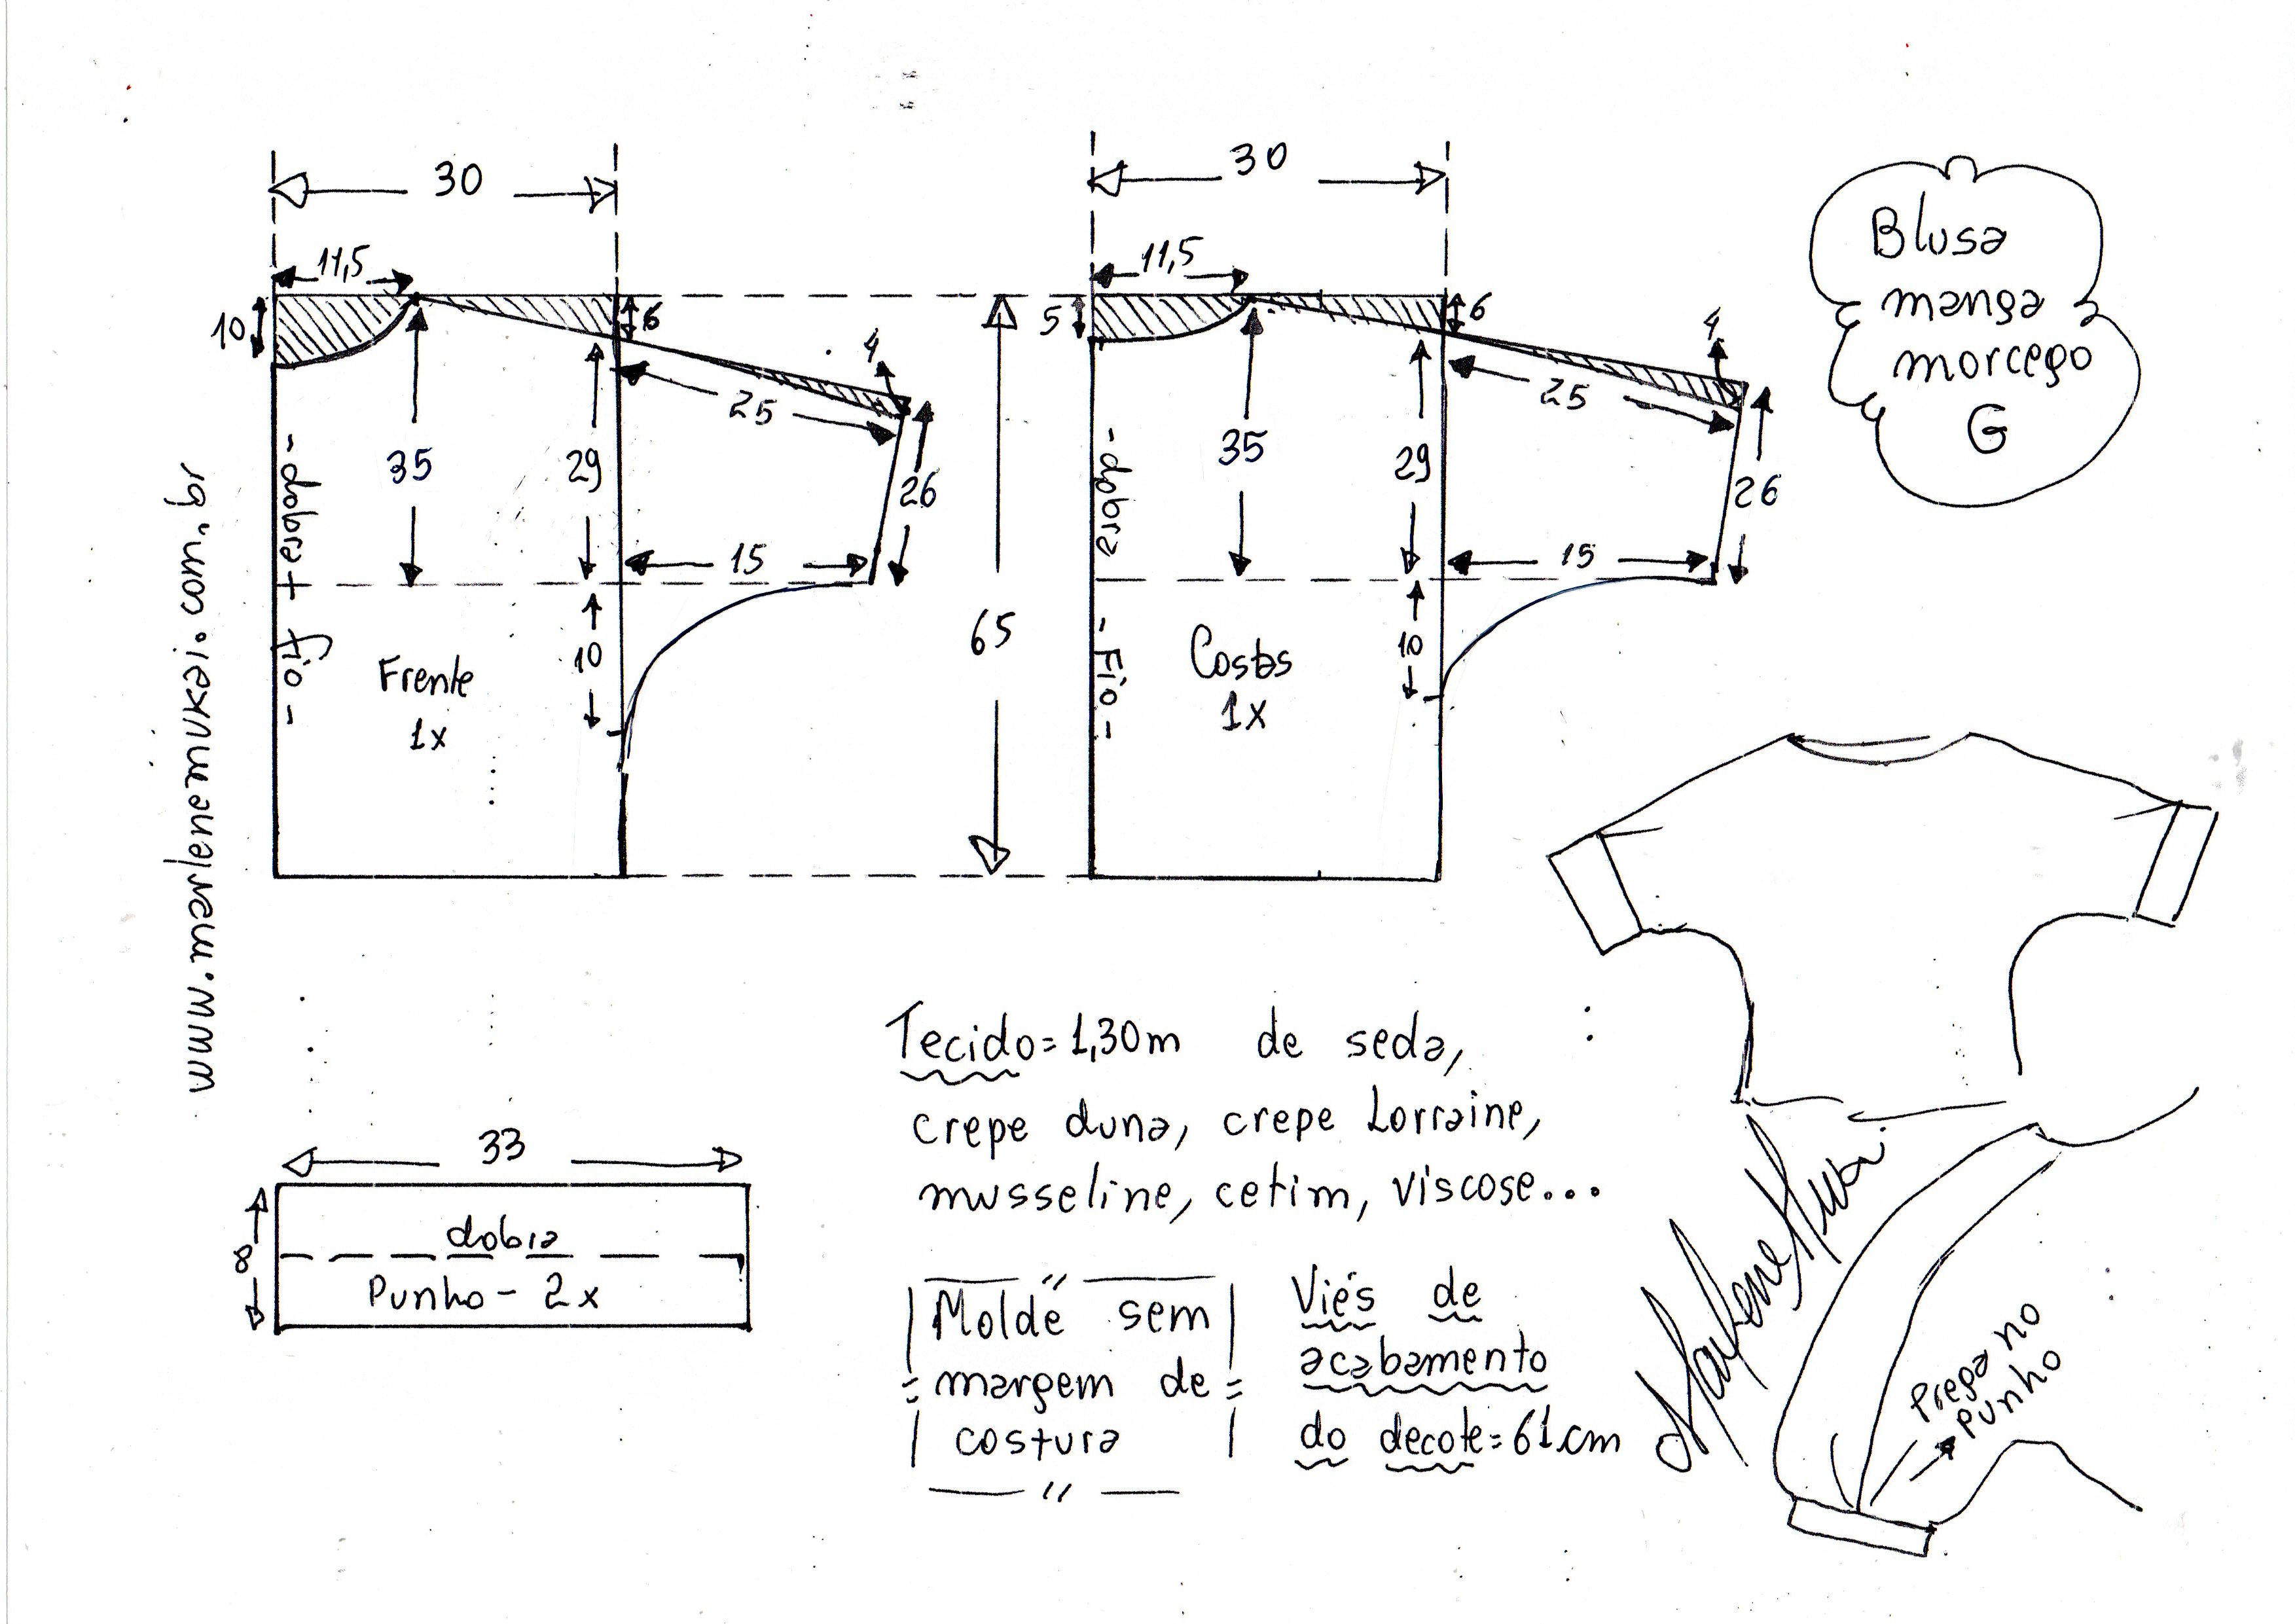 30
30
11,5
11,5
Blusa
manga
morcego
G
10
6
5
6
4
4
25
25
35
29
26
35
29
26
- dobra + fio -
- dobra - Fio -
15
15
10
65
10
Frente
1x
Costas
1x
www.marlenemukai.com.br
Tecido = 1,30m de seda,
crepe duna, crepe Lorraine,
musseline, cetim, viscose...
33
8
dobra
Punho - 2x
Molde sem
margem de
costura
Viés de
acabamento
do decote = 61 cm
Marlene Mukai
Prega no
Punho